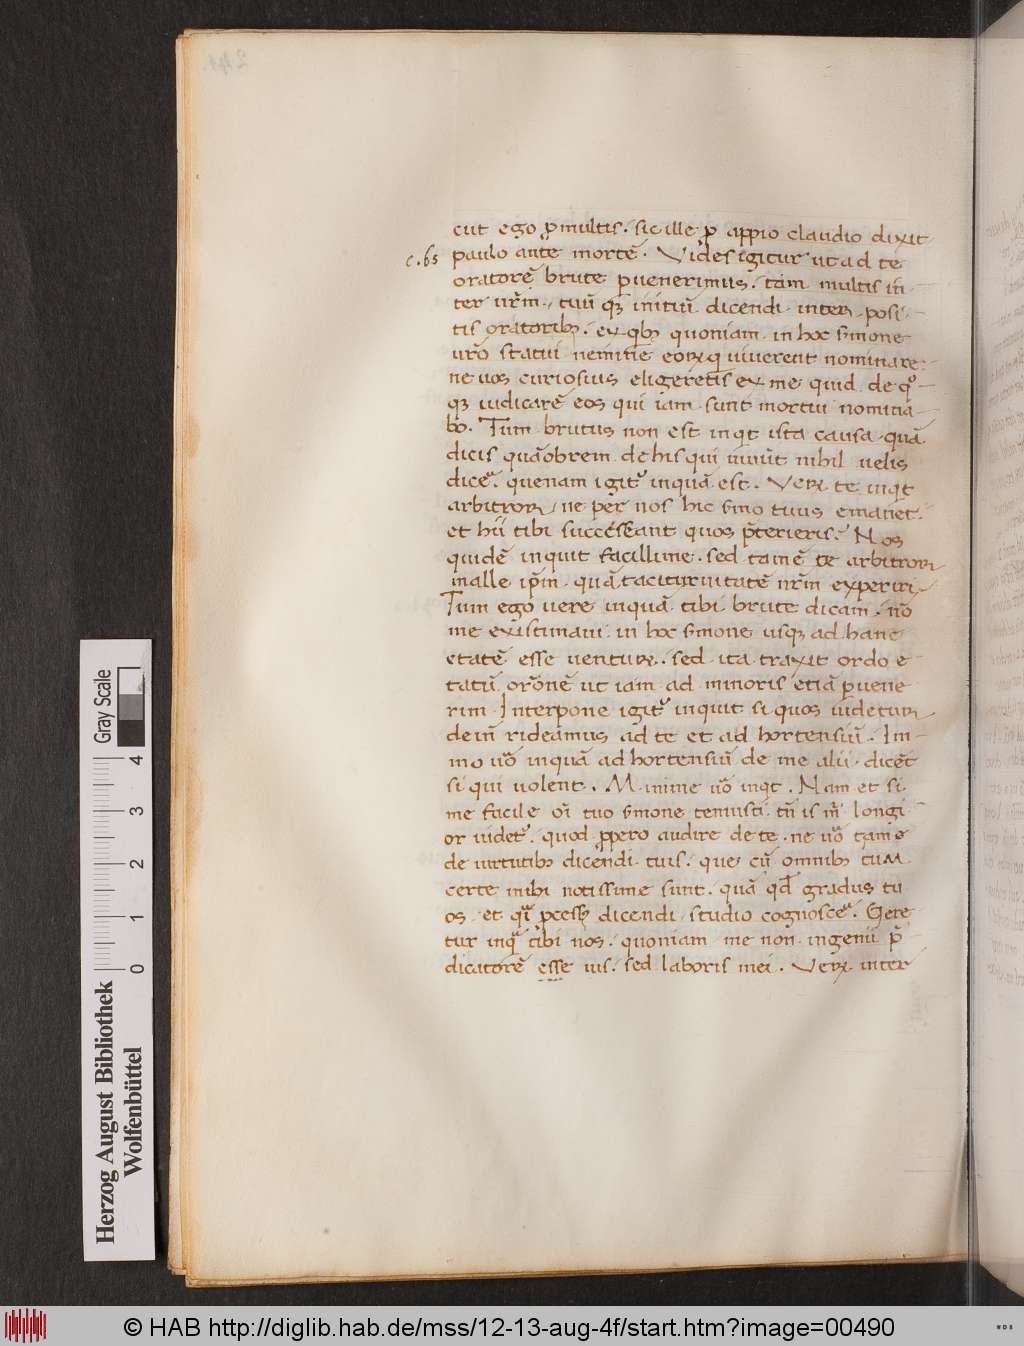 cut ego ꝓ multis. sic ille ꝓ appio claudio dixit
c. 65 paulo ante mortē. Vides igitur ut ad te
oratorē brute ꝑuenerimus. tam multis in
ter nr̄m, tuū qꝫ initiū dicendi inter posi
tis oratoribꝫ. ex qbꝫ quoniam in hoc s̄mone
nr̄o statui neminē eoꝝ q uiuerent nominare:
ne uos curiosius eligeretis ex me quid de quo
qꝫ iudicarē eos qui iam sunt mortui nomina
bo. Tum brutus non est inqt ista causa quā
dicis quāobrem de his qui uiuūt nihil uelis
dicere. quenam igitur inquā est. Veꝝ te inqt
arbitror, ne per nos hic s̄mo tuus emanet.
et hii tibi succēseant quos p̄terieris. Nos
quidē inquit facillime. sed tamē te arbitror
malle ip̄m quā taciturnitatē nr̄m experiri
Tum ego uere inquā tibi brute dicam. nō
me existimaui in hoc s̄mone usqꝫ ad hanc
etatē esse uentuꝝ. sed ita traxit ordo e
tatū or̄onē ut iam ad minoris etiā ꝑuene
rim Interpone igit᷑ inquit si quos uidetur
dein̄ rideamus ad te et ad hortensiū. Im
mo uō inquā ad hortensiū de me alii dicēt
si qui uolent. Minime uō inqt. Nam et si
me facile oī tuo s̄mone tenuisti. tn̄ is m̄ longi
or uidet᷑. quod ꝓpero audire de te. ne uō tam e
de uirtutibꝫ dicendi tuis. que cū omnibꝫ tum
certe mihi notissime sunt. quā qd̄ gradus tu
os et qī ꝓcessꝫ dicendi studio cognoscere. Gere
tur inq̄ tibi nos. quoniam me non ingenii p̄
dicatorē esse uis. sed laboris mei. Veꝝ inter
© HAB http://diglib.hab.de/mss/12-13-aug-4f/start.htm?image=00490
Herzog August Bibliothek
Wolfenbüttel
0 1 2 3 4
Gray Scale